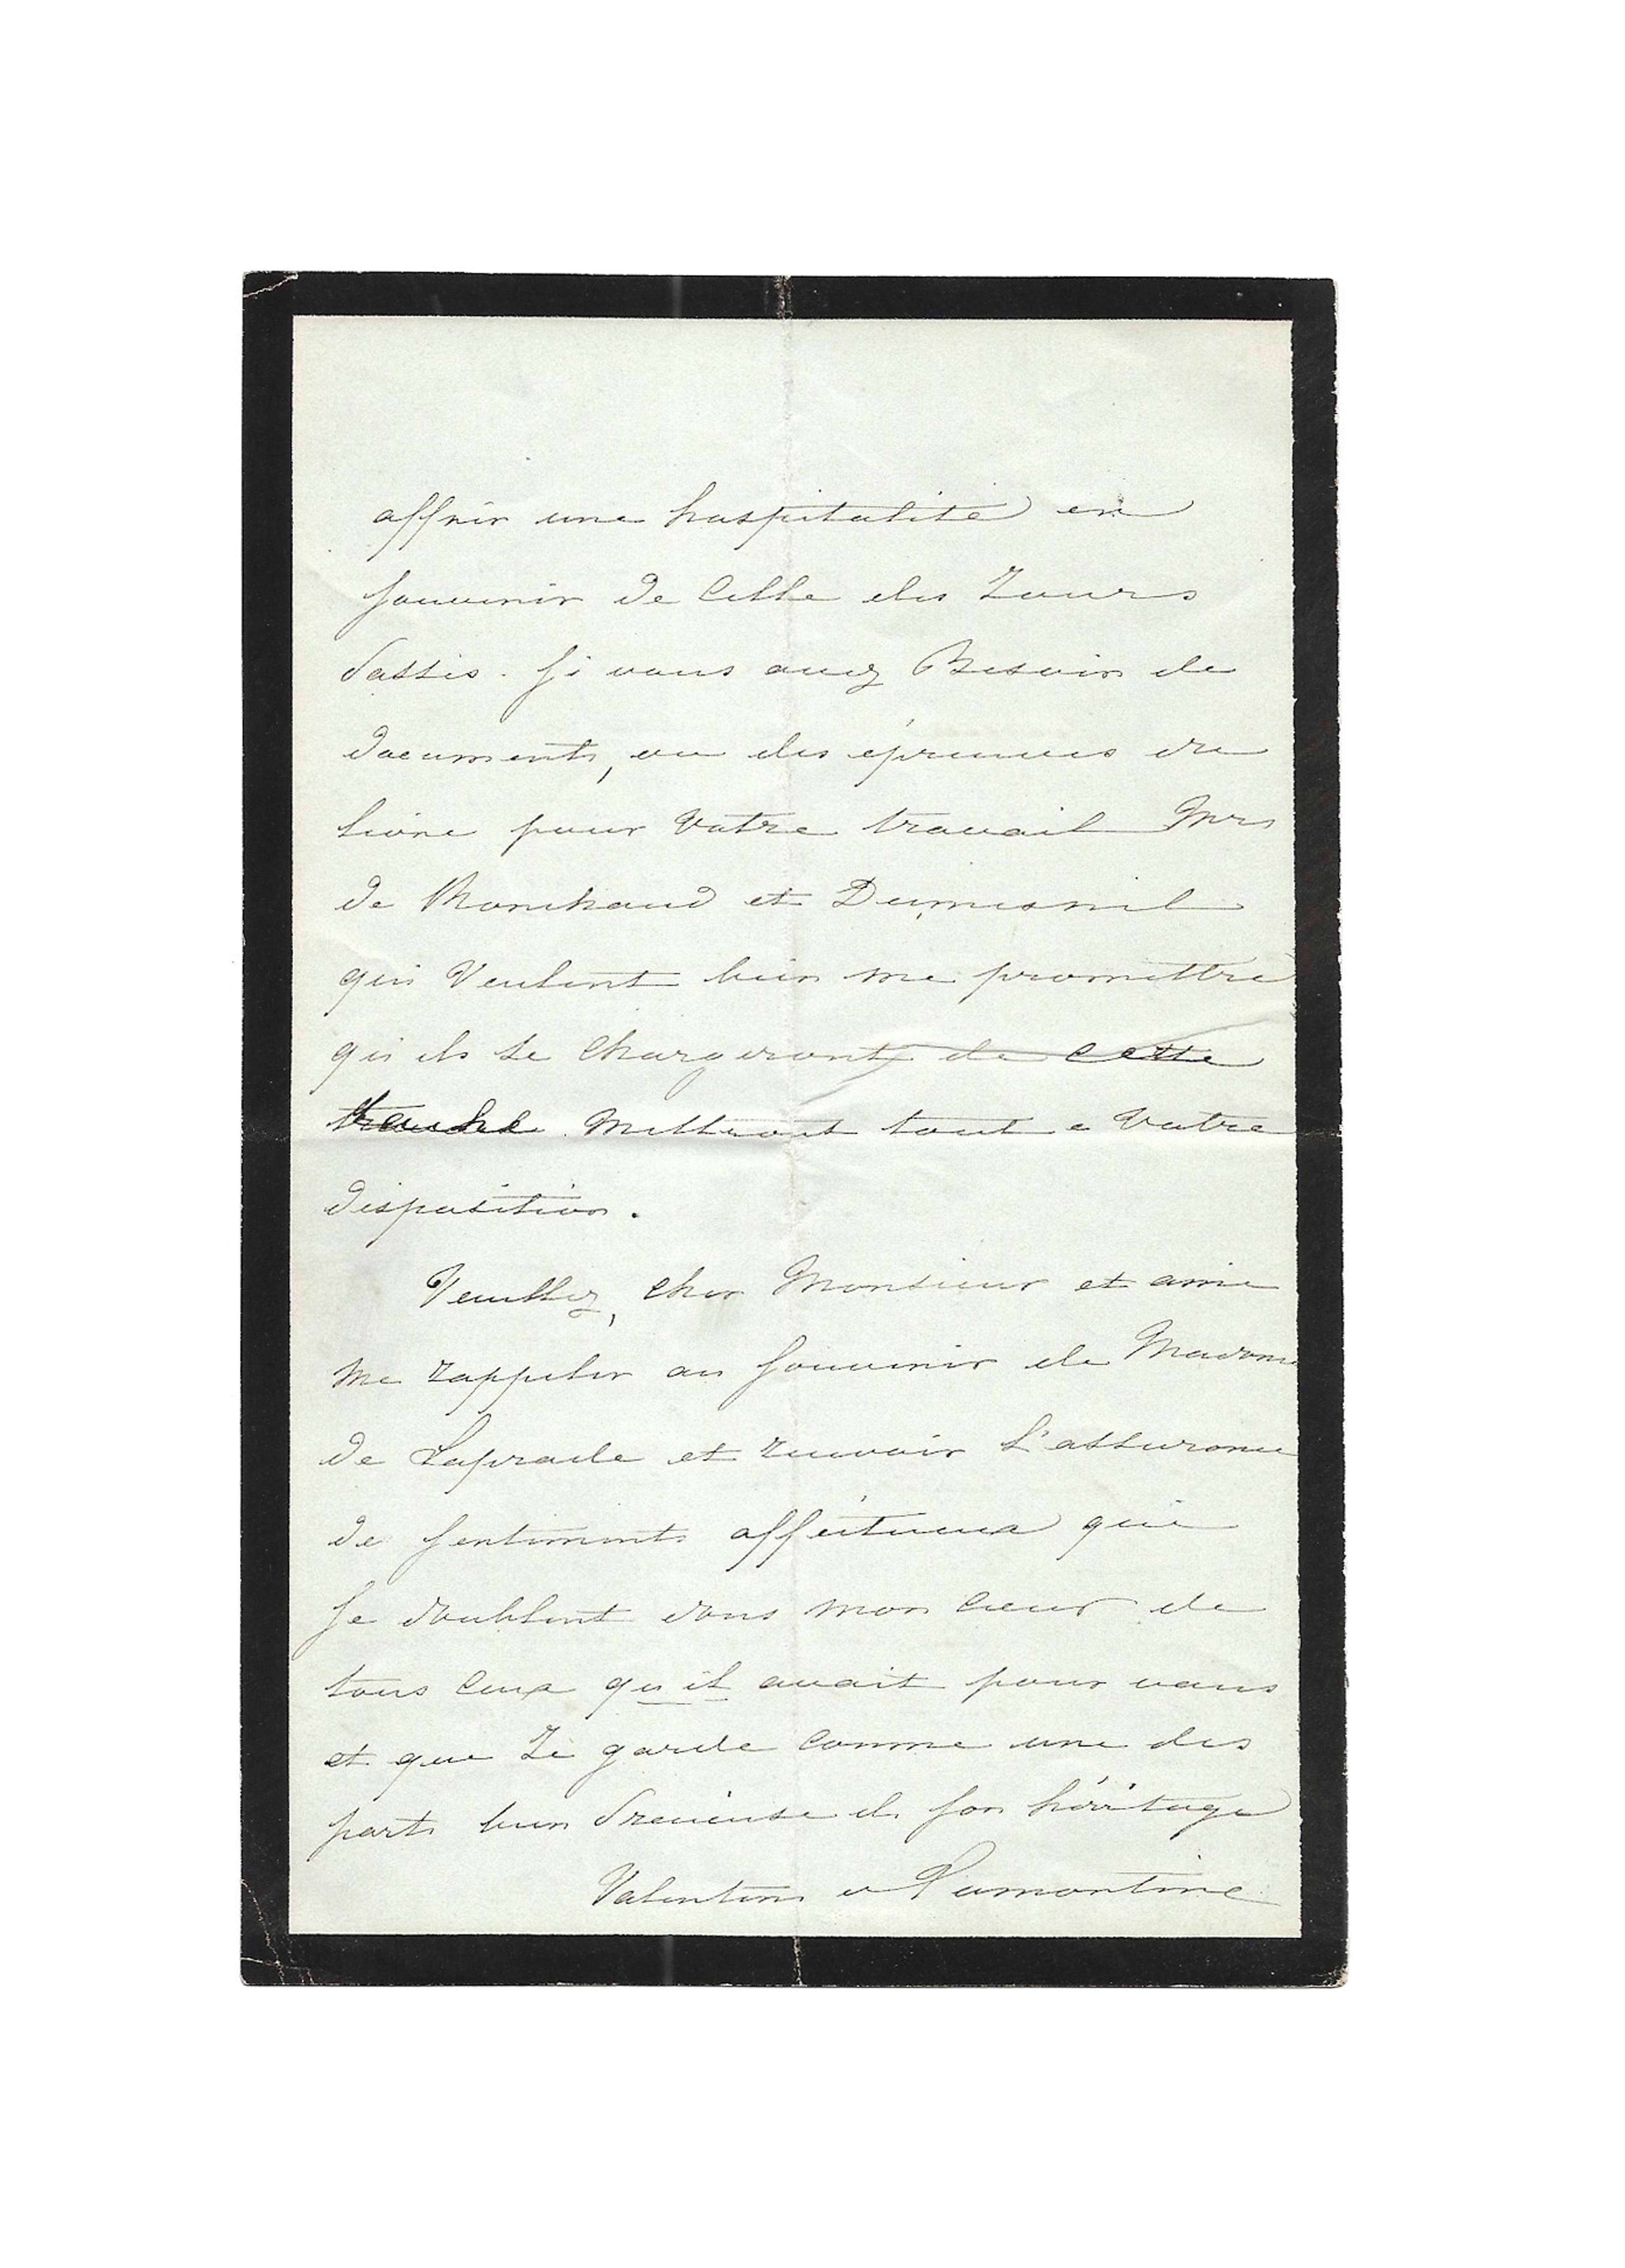 offrir une hospitalité en
souvenir de celle des Jours
passés. Si vous avez Besoin de
documents, ou des épreuves du
livre pour votre travail Mrs
de Ronchaud et Dumesnil
qui Veulent bien me promettre
qu'ils se Chargeront de cette
mettront tout a votre
disposition.
Veuillez, cher Monsieur et ami
me rappeler au souvenir de Madame
de Laprade et recevoir L'assurance
de sentiments affectueux qui
se doublent dans mon cœur de
tous ceux qu'il avait pour vous
et que Je garde comme une des
parts bien précieuse de son héritage
Valentine de Lamartine